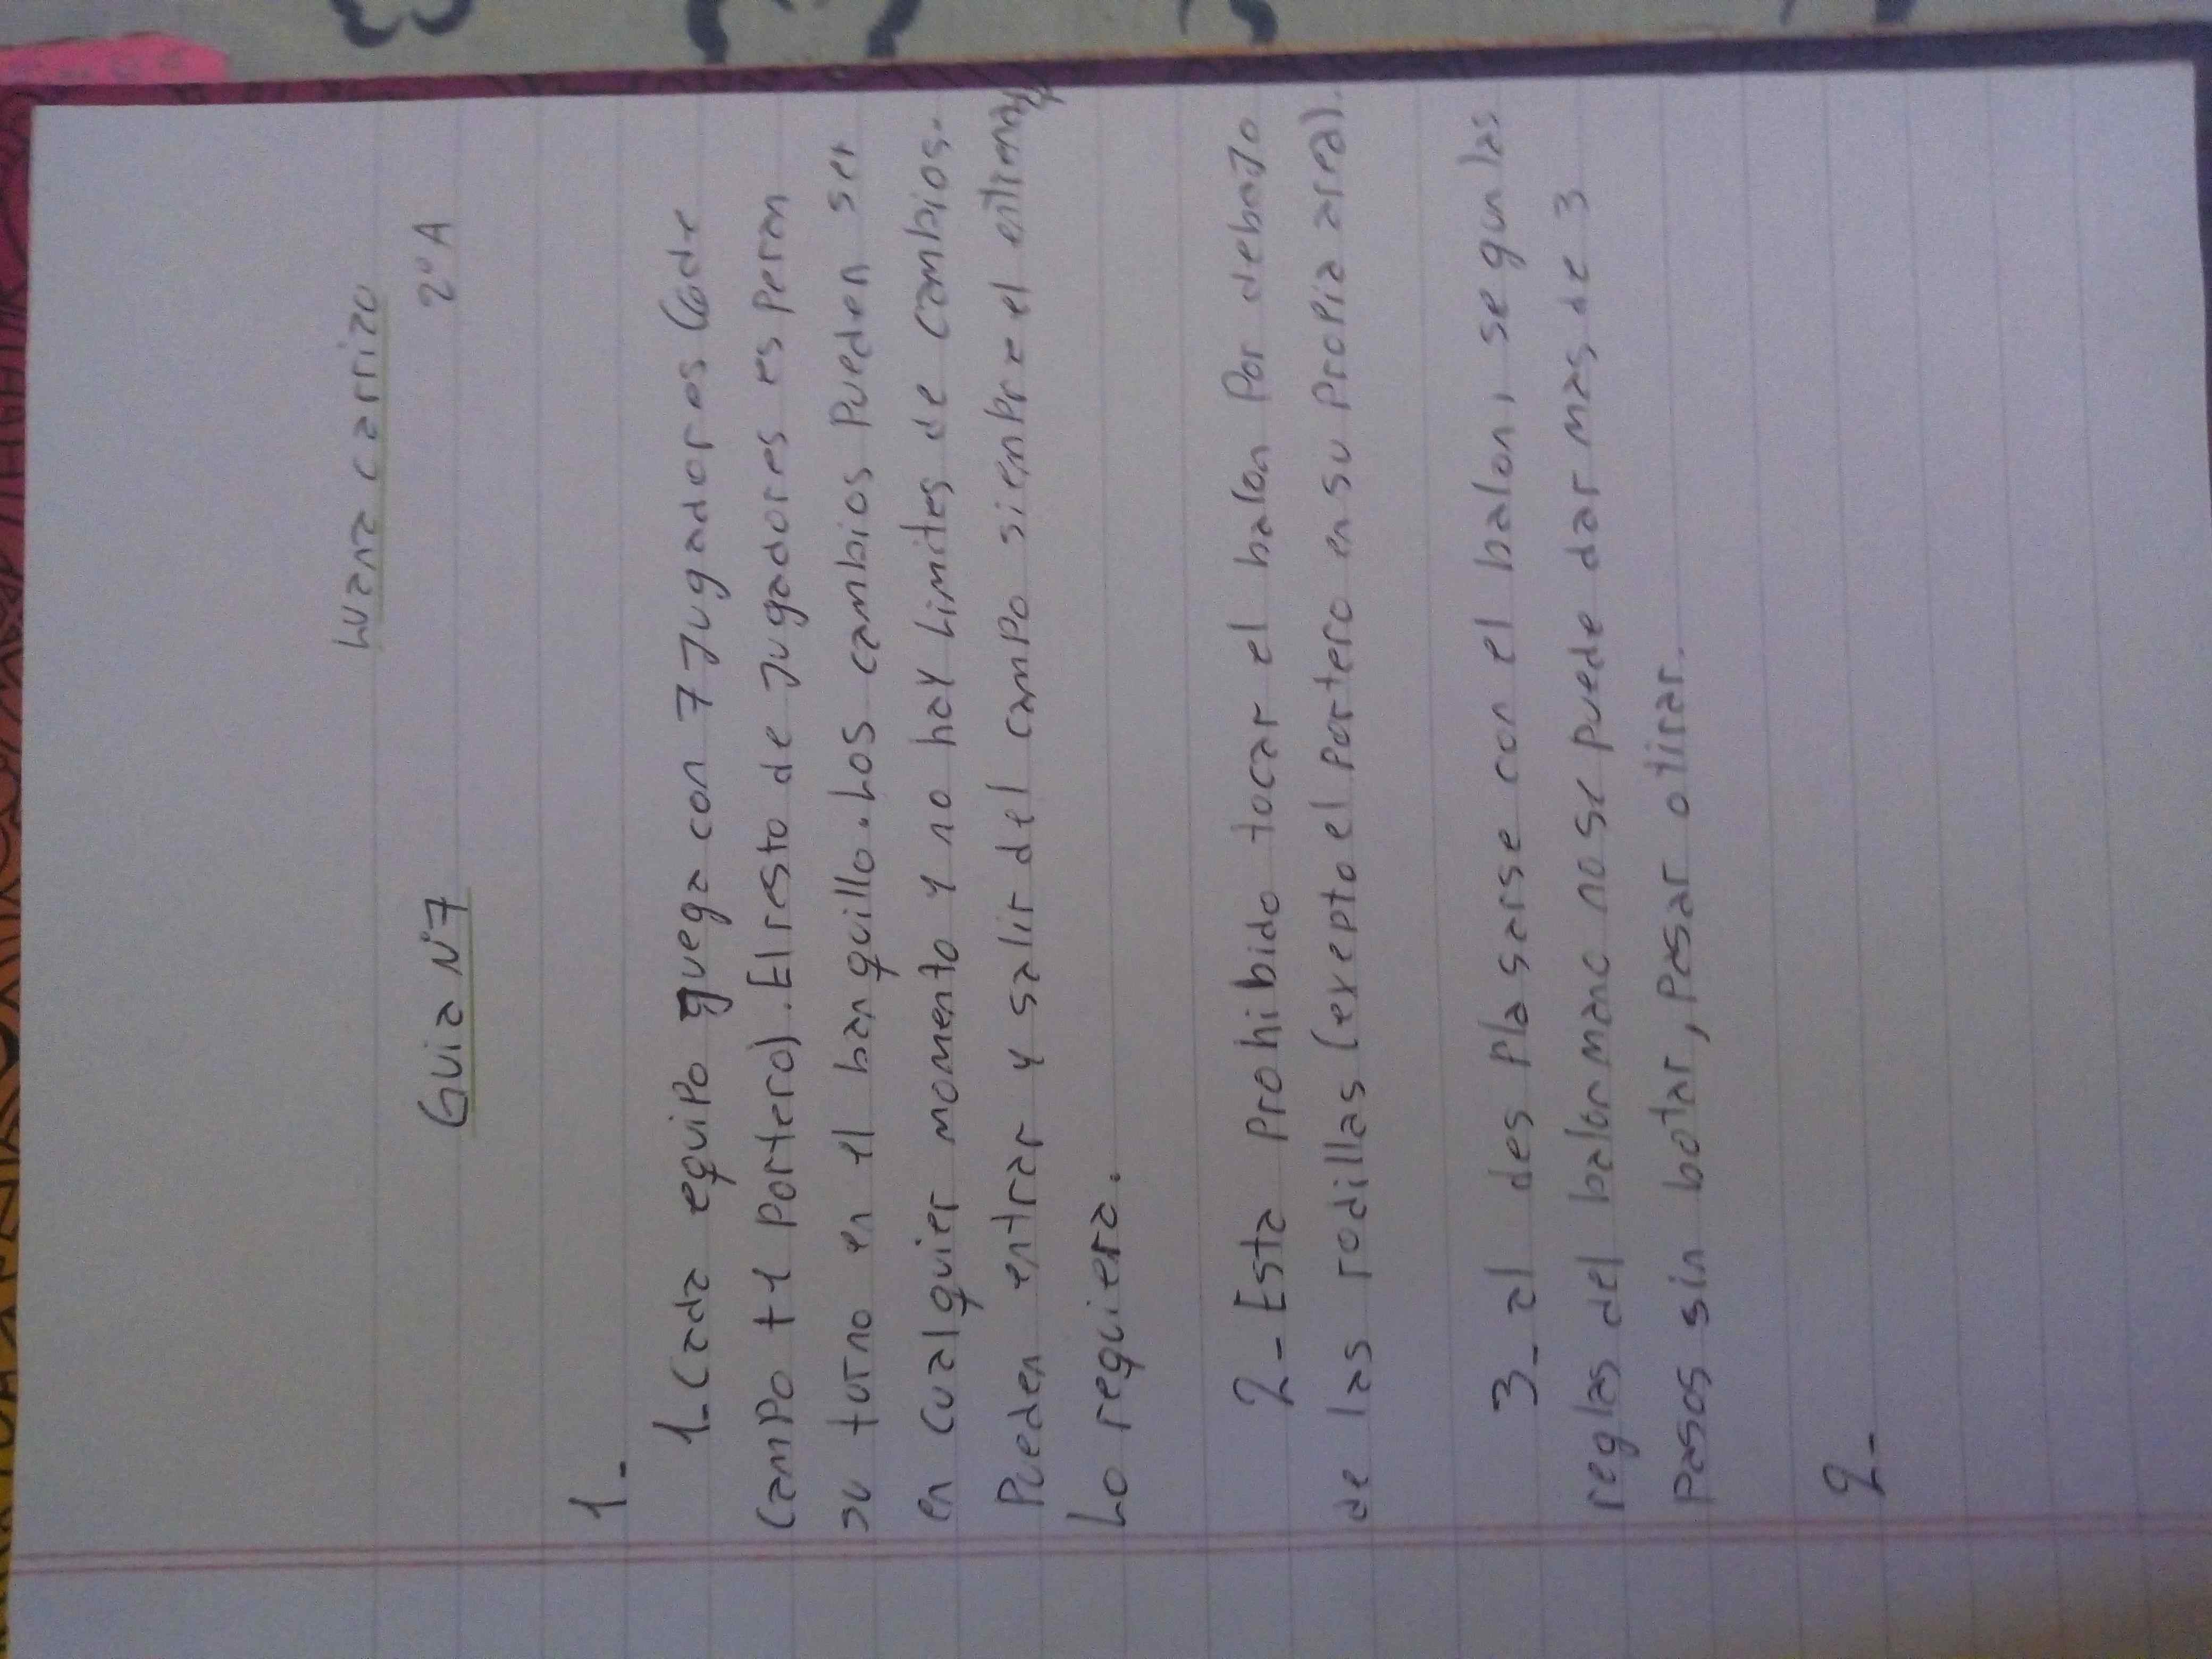 Luana carrizo
Guia N°7 2°A
1-
1-Cada equipo guega con 7 Jugadores (6 de
campo + 1 Portero). El resto de Jugadores es peran
su turno en el banquillo. Los cambios Pueden ser
en cualquier momento y no hay Limites de cambios.
Pueden entrar y salir del campo sienpre el
Lo requiera.
2-Esta Prohibido tocar el balon Por debajo
de las rodillas (exepto el Portero en su Propia area).
3-al des plasarse con el balon, segun las
reglas del balonmano no se puede dar mas de 3
Pasos sin botar, Pasar o tirar.
2-